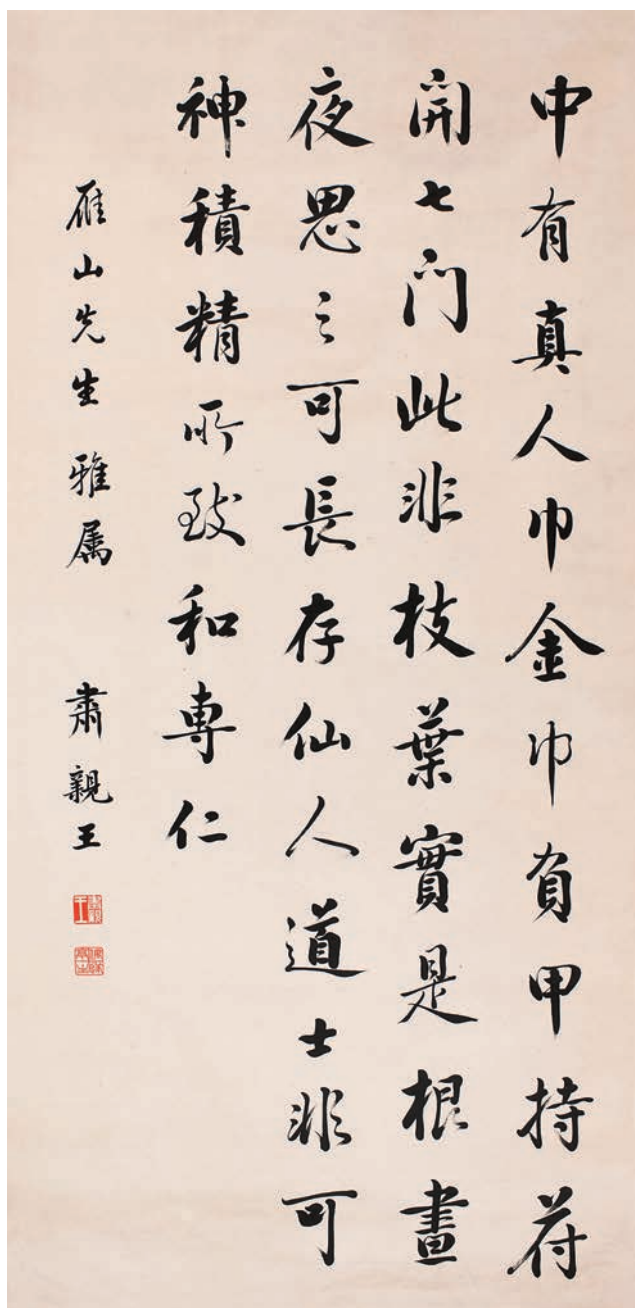 中有真人巾金巾負甲持符
開七门此非枝葉實是根畫
夜思之可長存仙人道士非可
神積精所致和專仁
雁山先生 雅属 肅親王